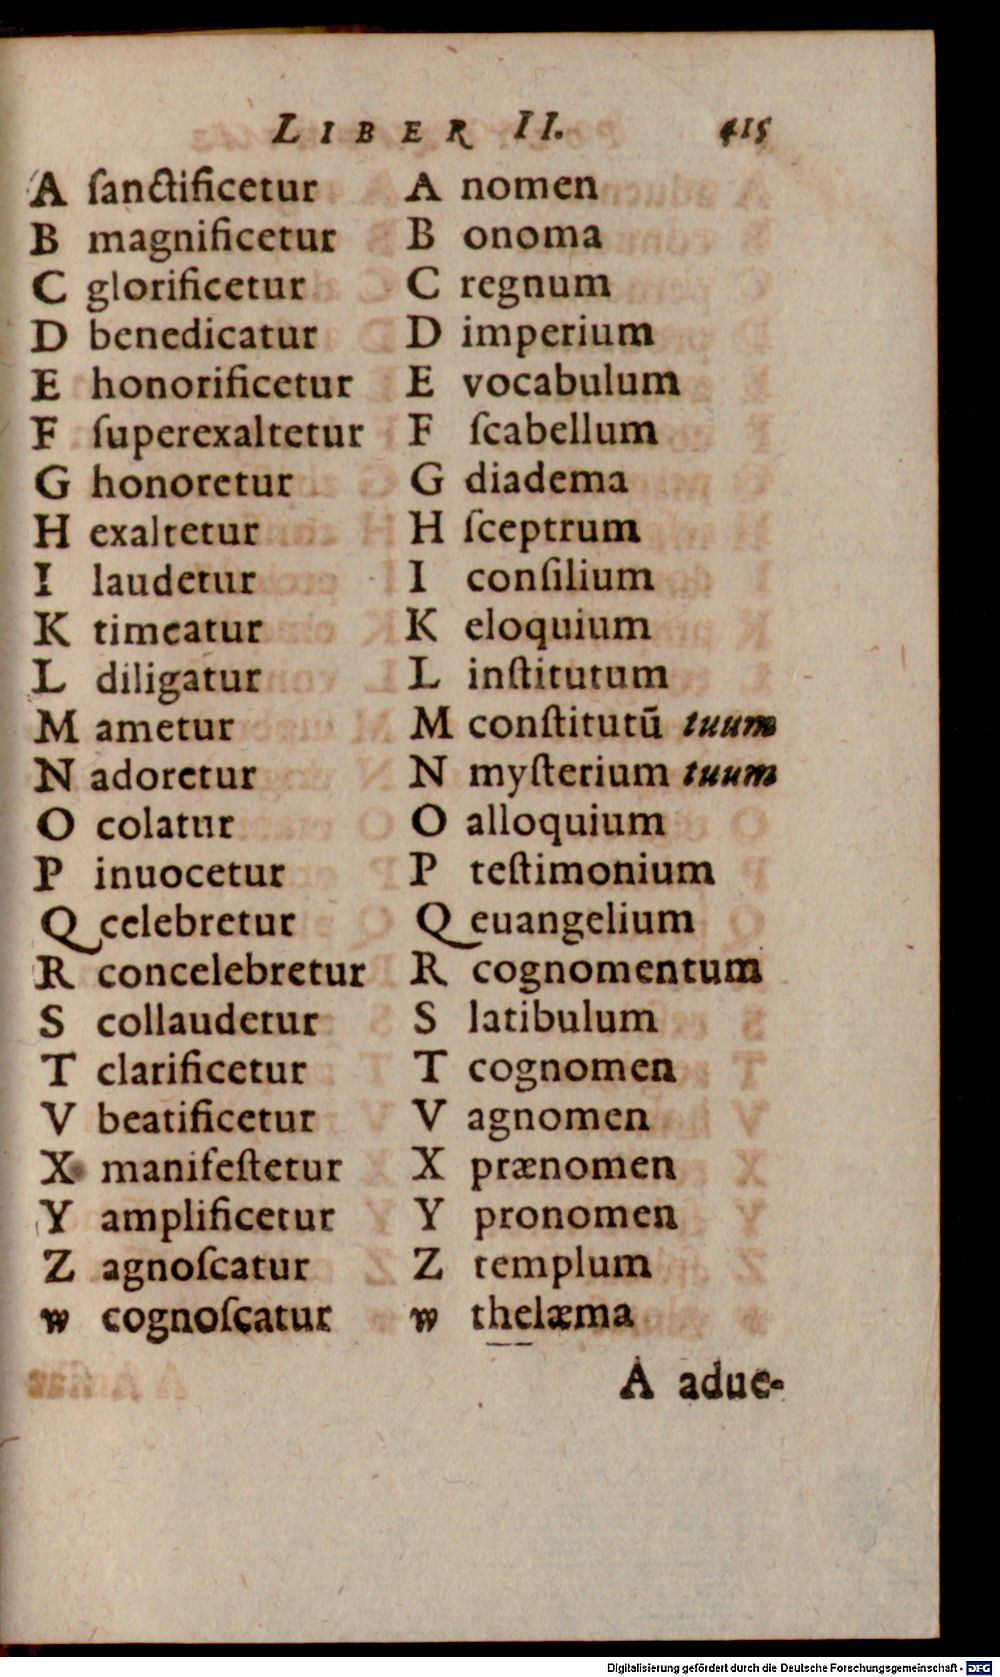 LIBER II. 415
A ſanctificetur A nomen
B magnificetur B onoma
C glorificetur C regnum
D benedicatur D imperium
E honorificetur E vocabulum
F ſuperexaltetur F ſcabellum
G honoretur G diadema
H exaltetur H ſceptrum
I laudetur I conſilium
K timeatur K eloquium
L diligatur L inſtitutum
M ametur M conſtitutū tuum
N adoretur N myſterium tuum
O colatur O alloquium
P inuocetur P teſtimonium
Q celebretur Q euangelium
R concelebretur R cognomentum
S collaudetur S latibulum
T clarificetur T cognomen
V beatificetur V agnomen
X manifeſtetur X prænomen
Y amplificetur Y pronomen
Z agnoſcatur Z templum
w cognoſcatur w thelæma
A adue-
Digitalisierung gefördert durch die Deutsche Forschungsgemeinschaft - DFG